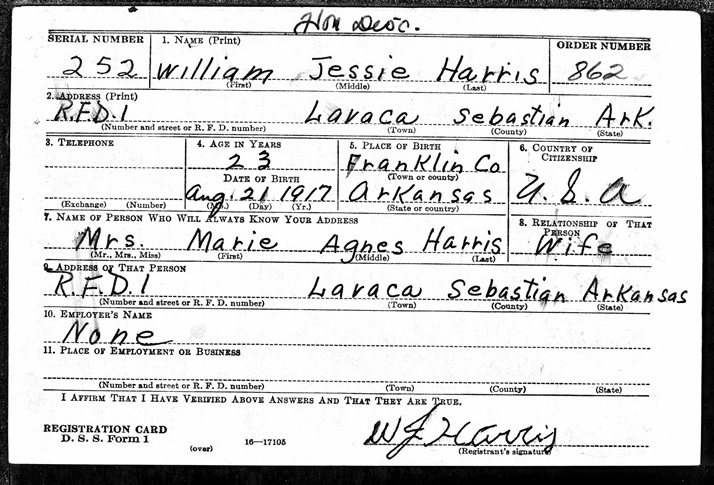 Hon Disc.
SERIAL NUMBER 1. NAME (Print) ORDER NUMBER
252 William Jessie Harris 862
(First) (Middle) (Last)
2. ADDRESS (Print)
R.F.D. 1 Lavaca Sebastian Ark.
(Number and street or R. F. D. number) (Town) (County) (State)
3. TELEPHONE 4. AGE IN YEARS 5. PLACE OF BIRTH 6. COUNTRY OF CITIZENSHIP
23 Franklin Co
DATE OF BIRTH (Town or county)
Aug. 21 1917 Arkansas U.S.A
(Exchange) (Number) (Mo.) (Day) (Yr.) (State or country)
7. NAME OF PERSON WHO WILL ALWAYS KNOW YOUR ADDRESS 8. RELATIONSHIP OF THAT PERSON
Mrs. Marie Agnes Harris Wife
(Mr., Mrs., Miss) (First) (Middle) (Last)
9. ADDRESS OF THAT PERSON
R.F.D. 1 Lavaca Sebastian Arkansas
(Number and street or R. F. D. number) (Town) (County) (State)
10. EMPLOYER'S NAME
None
11. PLACE OF EMPLOYMENT OR BUSINESS
(Number and street or R. F. D. number) (Town) (County) (State)
I AFFIRM THAT I HAVE VERIFIED ABOVE ANSWERS AND THAT THEY ARE TRUE.
REGISTRATION CARD W J Harris
D. S. S. Form 1 (over) 16—17105 (Registrant's signature)